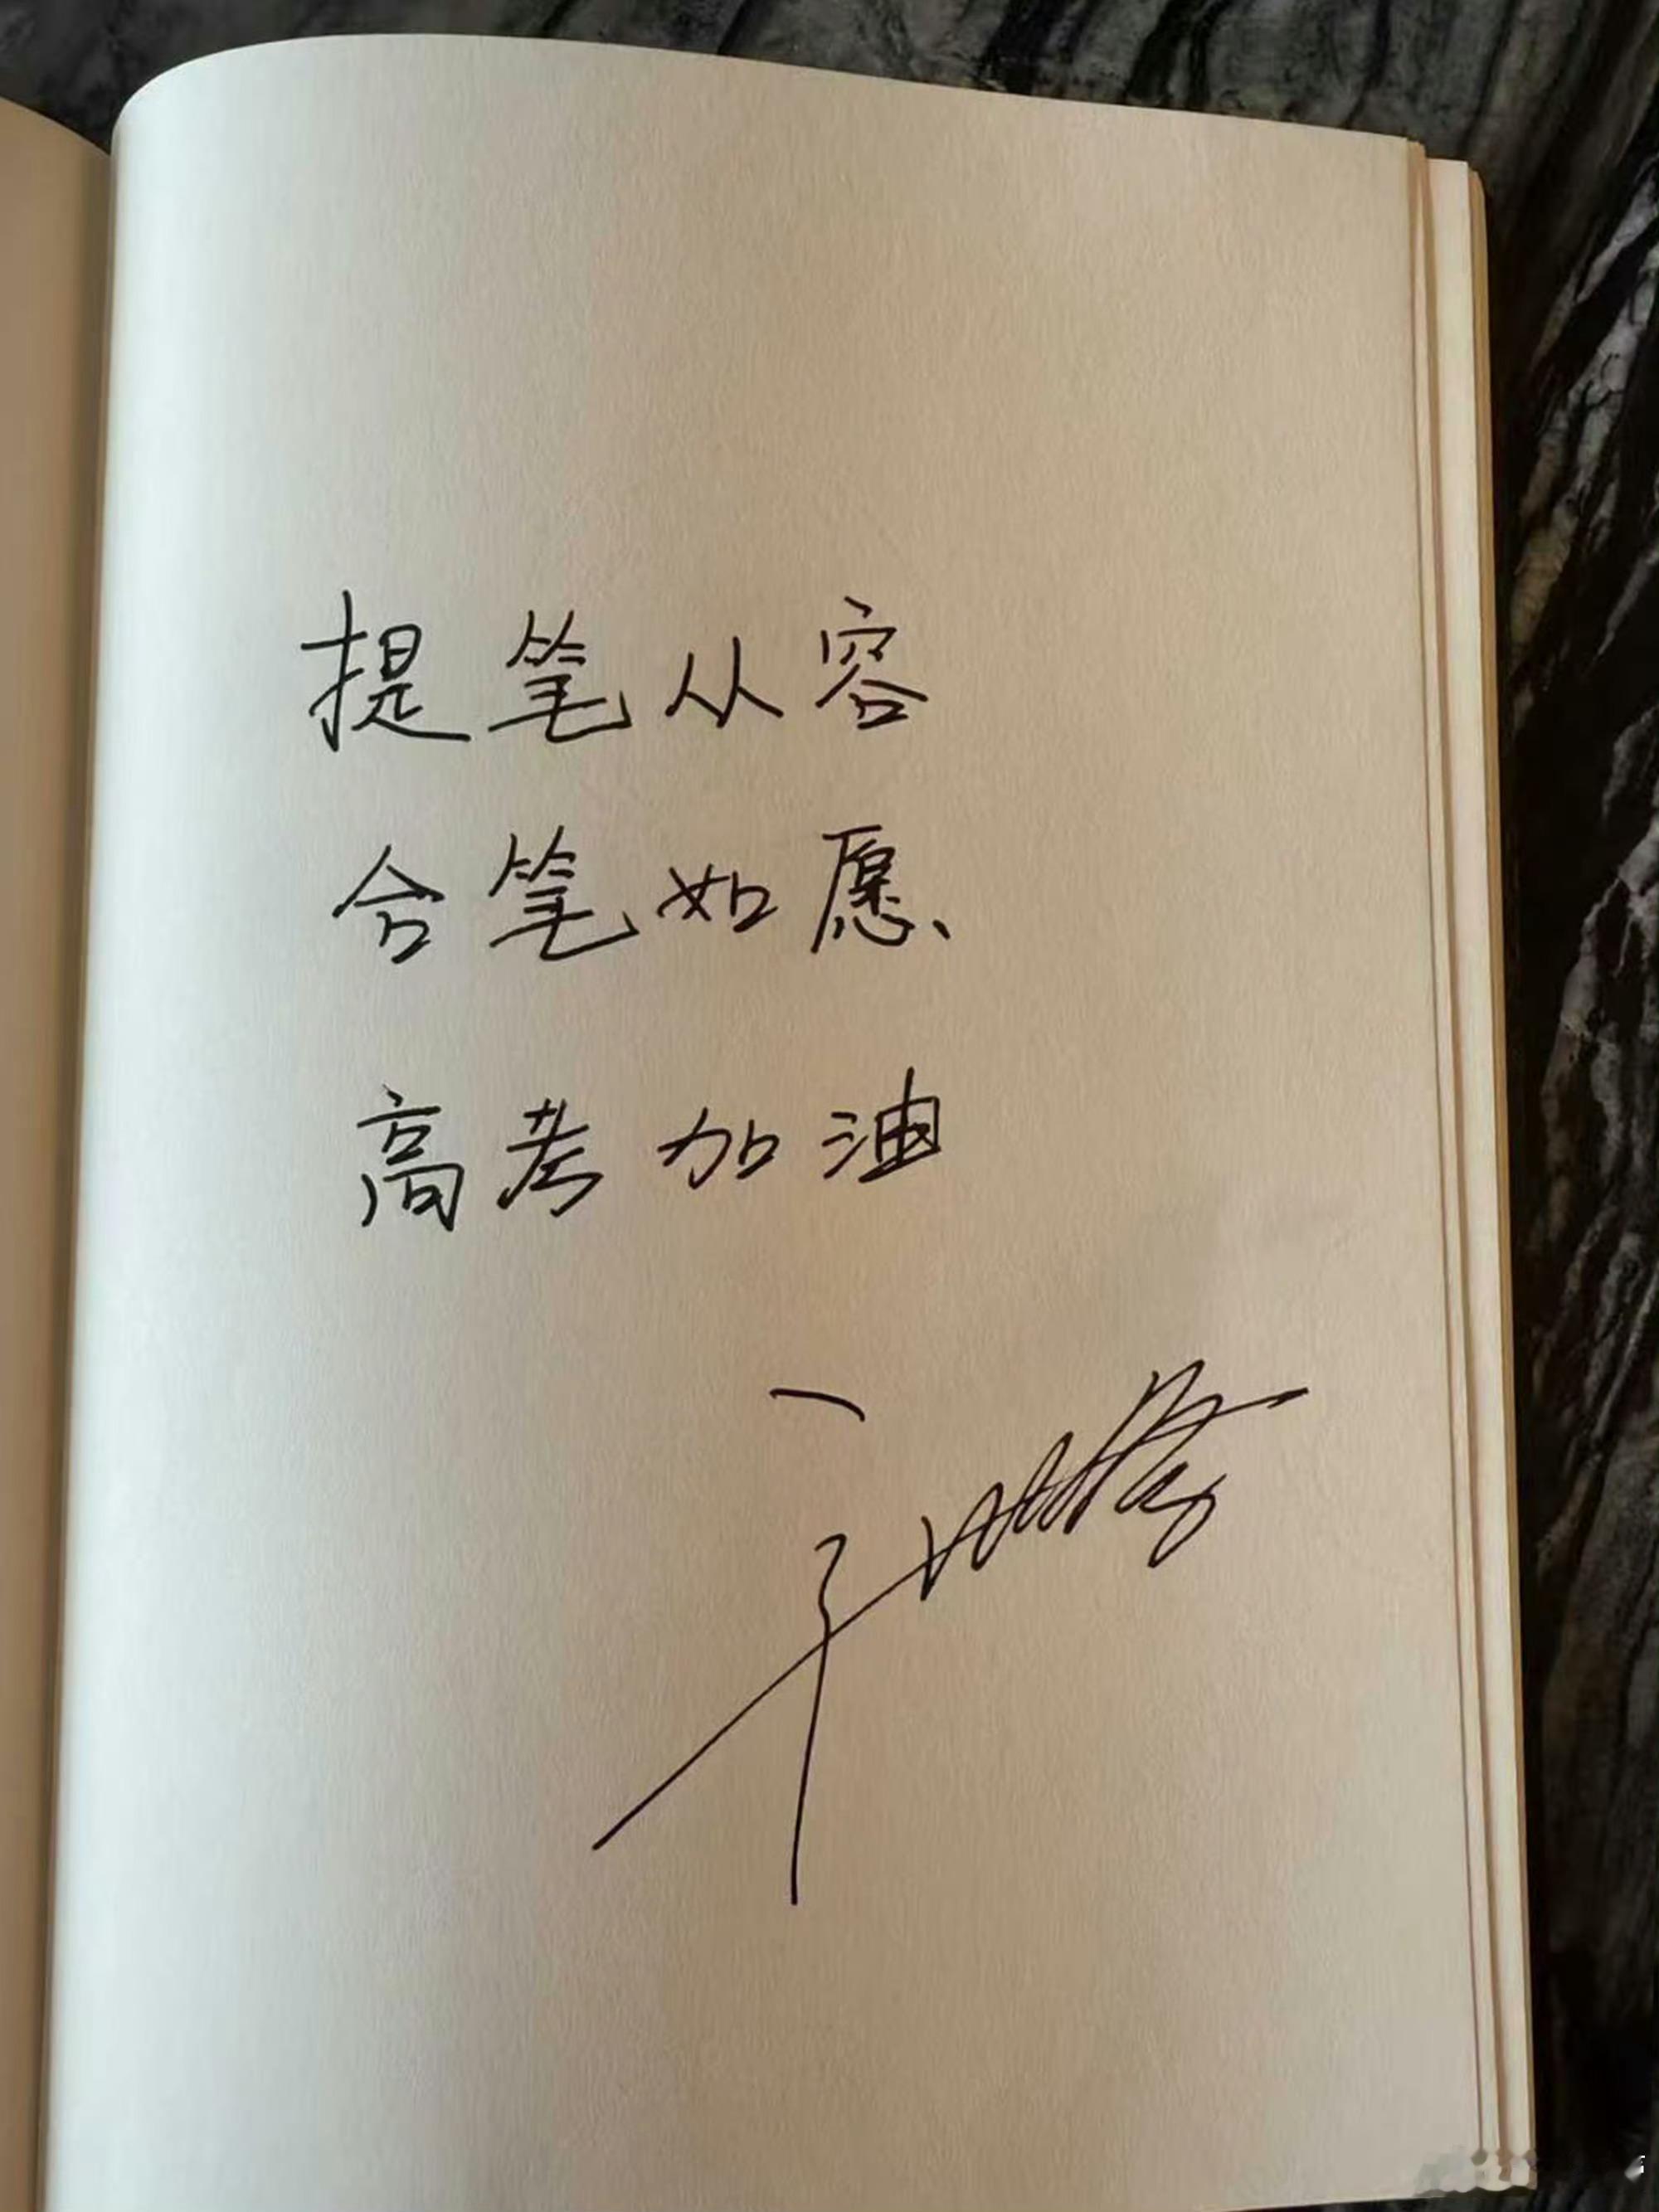 提笔从容
合笔如愿、
高考加油